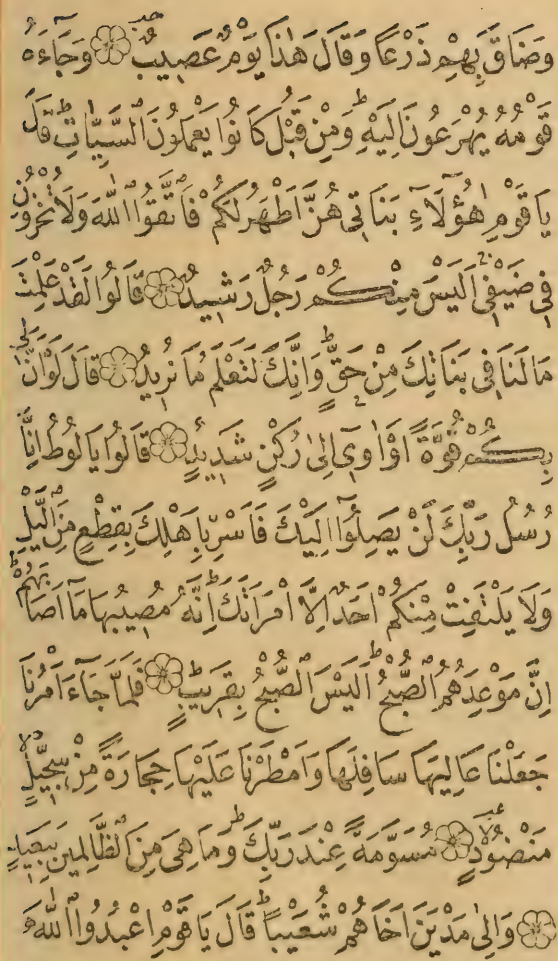 وَضَاقَ بِهِمْ ذَرْعًا وَقَالَ هٰذَا يَوْمٌ عَصِيبٌ ۝ وَجَآءَهُ
قَوْمُهُ يُهْرَعُونَ اِلَيْهِ ۖ وَمِنْ قَبْلُ كَانُوا يَعْمَلُونَ السَّيِّاٰتِ ۖ قَالَ
يَا قَوْمِ هٰؤُلَآءِ بَنَاتِى هُنَّ اَطْهَرُ لَكُمْ فَاتَّقُوا اللّٰهَ وَلَا تُخْزُونِ
فِى ضَيْفِى اَلَيْسَ مِنْكُمْ رَجُلٌ رَشِيدٌ ۝ قَالُوا لَقَدْ عَلِمْتَ
مَا لَنَا فِى بَنَاتِكَ مِنْ حَقٍّ ۖ وَاِنَّكَ لَتَعْلَمُ مَا نُرِيدُ ۝ قَالَ لَوْ اَنَّ لِى
بِكُمْ قُوَّةً اَوْ اٰوِى اِلٰى رُكْنٍ شَدِيدٍ ۝ قَالُوا يَا لُوطُ اِنَّا
رُسُلُ رَبِّكَ لَنْ يَصِلُوٓا اِلَيْكَ فَاَسْرِ بِاَهْلِكَ بِقِطْعٍ مِنَ الَّيْلِ
وَلَا يَلْتَفِتْ مِنْكُمْ اَحَدٌ اِلَّا امْرَاَتَكَ ۖ اِنَّهُ مُصِيبُهَا مَآ اَصَابَهُمْ ۖ
اِنَّ مَوْعِدَهُمُ الصُّبْحُ ۖ اَلَيْسَ الصُّبْحُ بِقَرِيبٍ ۝ فَلَمَّا جَآءَ اَمْرُنَا
جَعَلْنَا عَالِيَهَا سَافِلَهَا وَاَمْطَرْنَا عَلَيْهَا حِجَارَةً مِنْ سِجِّيلٍ
مَنْضُودٍ ۝ مُسَوَّمَةً عِنْدَ رَبِّكَ ۖ وَمَا هِىَ مِنَ الظَّالِمِينَ بِبَعِيدٍ
۝ وَاِلٰى مَدْيَنَ اَخَاهُمْ شُعَيْبًا ۖ قَالَ يَا قَوْمِ اعْبُدُوا اللّٰهَ